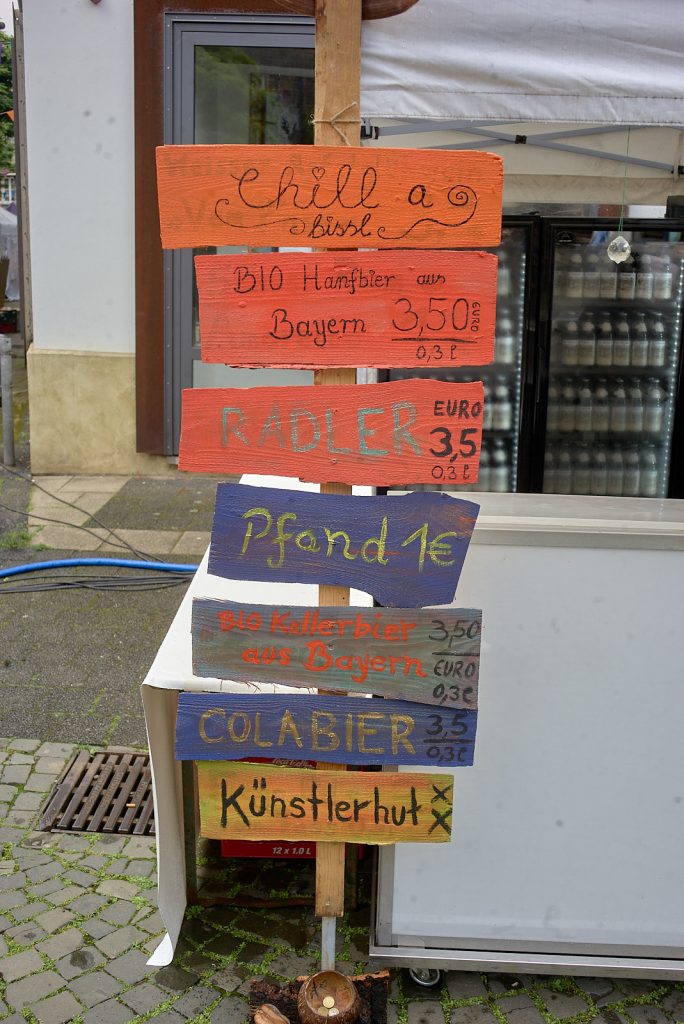 Chill a
bissl
BIO Hanfbier aus
Bayern 3,50 EURO
0,3 l
RADLER EURO
3,5
0,3 l
Pfand 1€
BIO Kellerbier 3,50
aus Bayern EURO
0,3 l
COLABIER 3,5
0,3 l
Künstlerhut xx
12 x 1.0 L